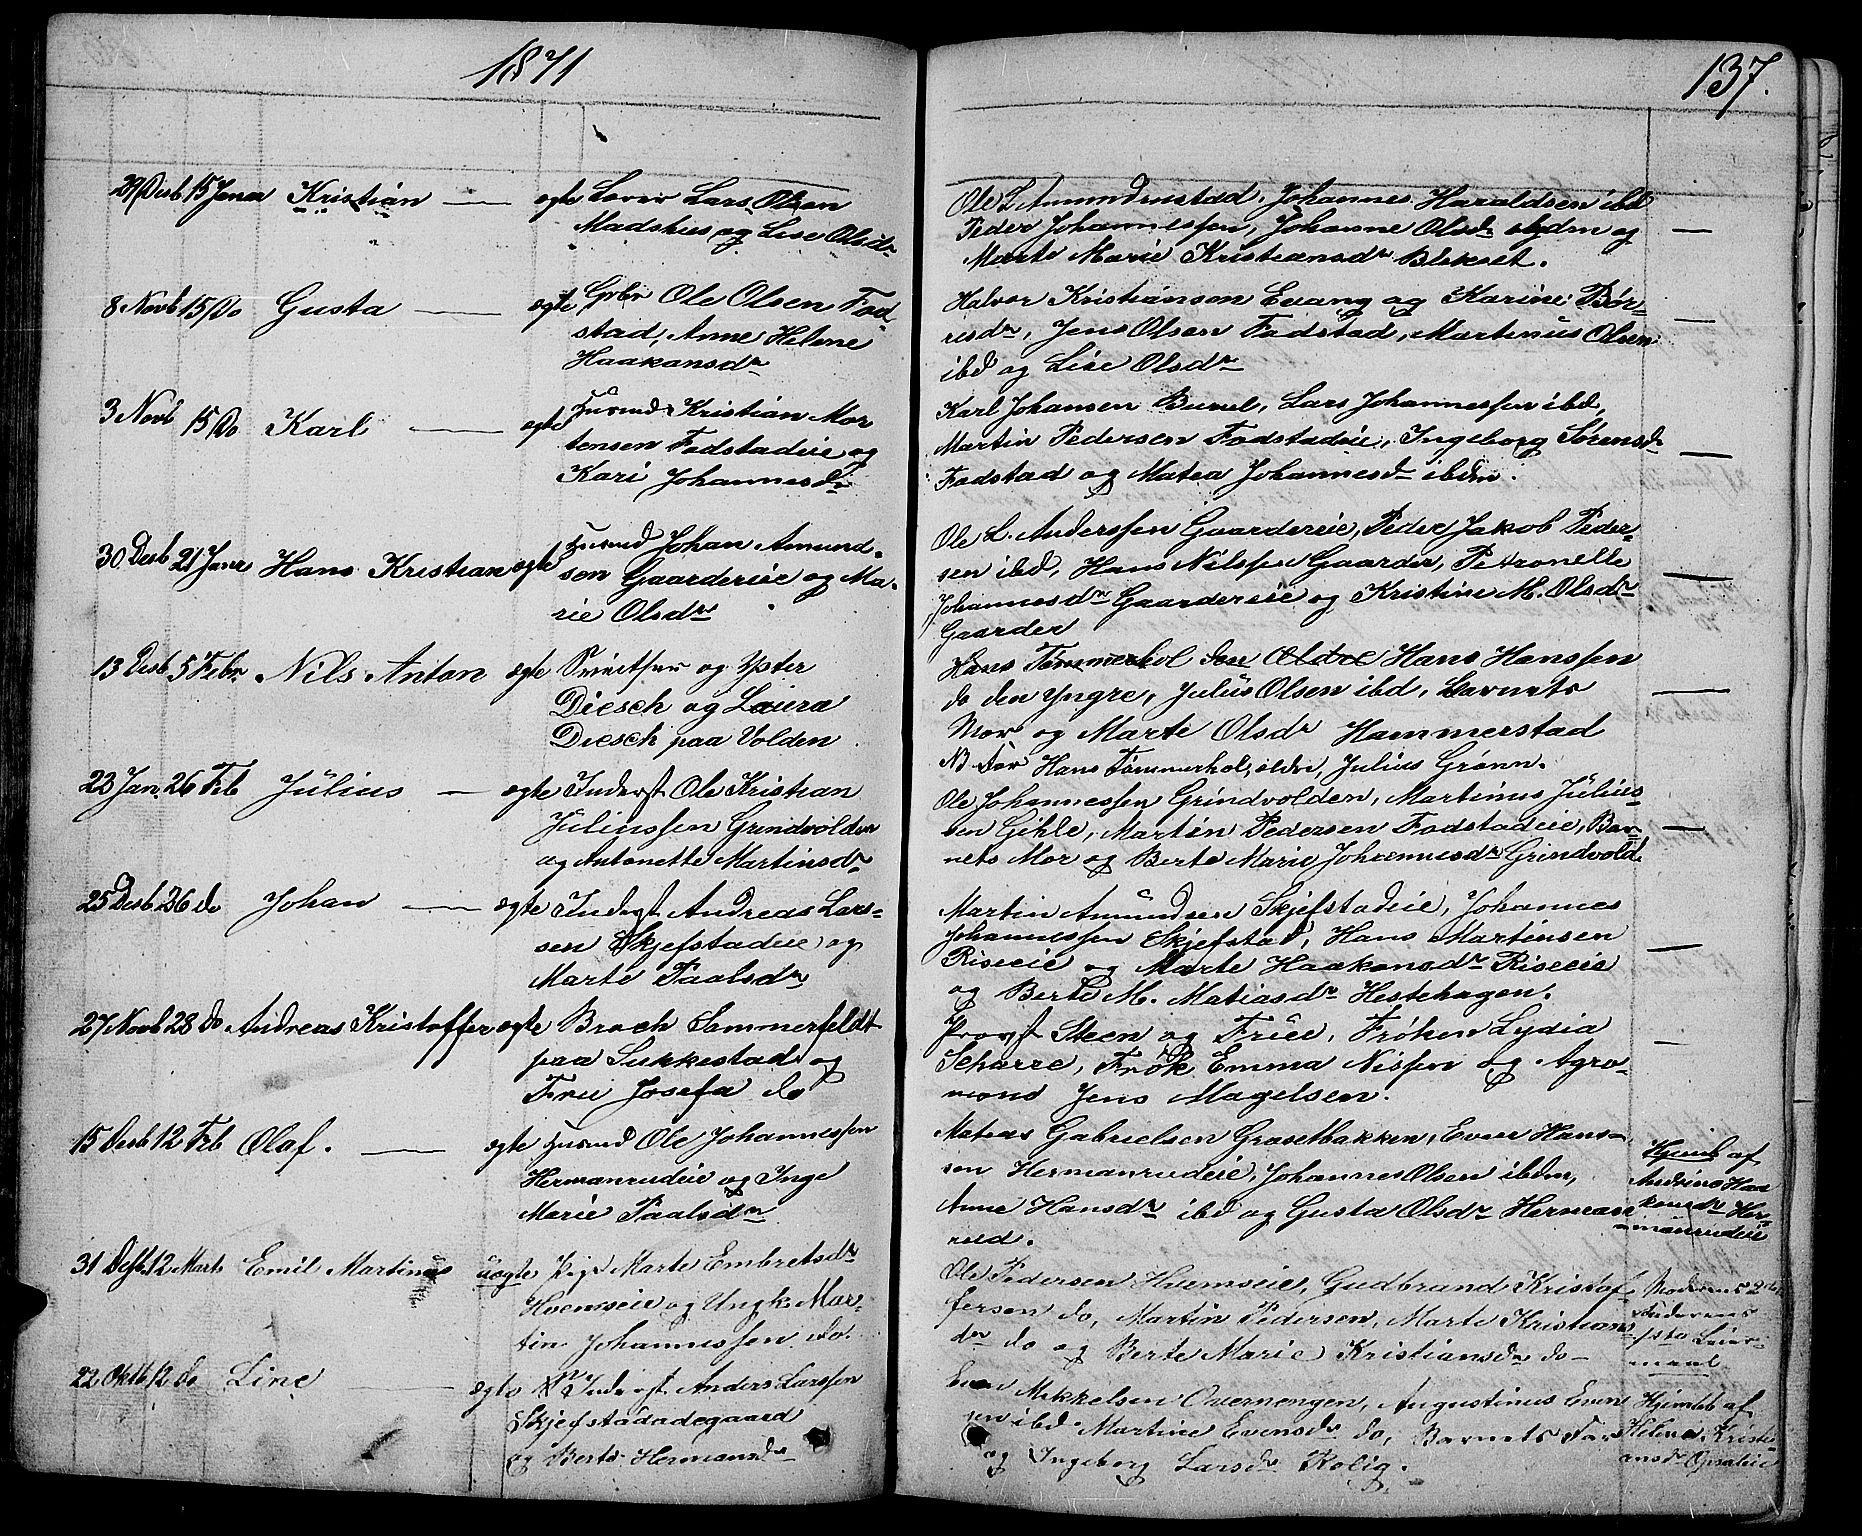 1871
137.
29/Desb 15 Janu Kristian — ægte Snever Lars Olsen
Madshus og Lise Olsdr
Ole L Amundrustad, Johannes Haraldsen ibd
Peder Johannessen, Johanne Olsdr ibdm og
Marte Marie Kristiansdr Blekset. —
8 Novb 15/Do Gusta — ægte Grbr Ole Olsen Fod-
stad, Anne Helene
Haakonsdr
Halvor Kristiansen Evang og Karine Bør-
resdr, Jens Olsen Fodstad, Martinus Olsen —
ibd og Lise Olsdr
3 Novb 15/Do Karl — ægte Husmd Kristian Mor
tensen Fodstadeie og
Kari Johannesdr
Karl Johansen Burul, Lars Johannessen ibd,
Martin Pedersen Fodstadeie, Ingeborg Sørensdr
Fodstad og Matea Johannesdr ibdm. —
30 Desb 21 Janr Hans Kristian ægte Husmd Johan Amund-
sen Gaardereie og Ma-
rie Olsdr
Ole L. Anderssen Gaardereie, Peder Jakob Peder-
sen ibd, Hans Nilssen Gaarder, Petronelle
Johannesdr Gaardereie og Kristine M. Olsdr —
Gaarder
13 Desb 5 Febr Nils Anton ægte Sveitser og Yster
Diesch og Laura
Diesch paa Volden
Hans Tømmerhol den Ældre Hans Hanssen
do den Yngre, Julius Olsen ibd, Barnets —
Mor og Marte Olsdr Hammerstad
NB For Hans Tømmerhol, ældre, Julius Grønn.
23 Jan. 26 Feb Julius — ægte Inderst Ole Kristian
Juliussen Grindvolden
og Antonette Martinsdr
Ole Johannessen Grindvolden, Martinus Julius-
sen Gihle, Martin Pedersen Fodstadeie, Bar- —
nets Mor og Berte Marie Johannesdr Grindvold.
25 Desb 26 do Johan — ægte Inderst Andreas Lars-
sen Skjefstadeie og
Marte Paalsdr
Martin Amundsen Skjefstadeie, Johannes
Johannessen Skjefstad, Hans Martinsen
Riseeie og Marte Haakonsdr Riseeie —
og Berte M. Matiasdr Hestehagen.
27 Novb 28 do Andreas Kristoffer ægte Broch Sommerfeldt
paa Sukkestad og
Frue Josefa do
Provst Steen og Frue, Frøken Lydia
Scharre, Frøk Emma Nissen og Agro- —
nom Jens Magelsen.
15 Desb 12 Feb Olaf. — ægte Husmd Ole Johannessen
Hermanrudeie og Inge
Marie Paalsdr
Matias Gabrielsen Grasetbakken, Even Hans-
sen Hermanrudeie, Johannes Olsen ibdm,
Anne Hansdr ibd og Gusta Olsdr Herman
rud.
Hjemb af
Andrina Haa
konsdr Her-
manrudeie
31 Desb 12 Marts Emil Martinus uægte Pige Marte Embretsdr
Hvemseie og Ungk. Mar-
tin Johannessen do.
Ole Pedersen Hvemseie, Gudbrand Kristof-
fersen do, Martin Pedersen, Marte Kristians
dr do og Berte Marie Kristiansdr do —
Moderens 2det
Faderens
1ste Leier-
maal
22 Oktb 12 do Line — ægte Inderst Anders Larssen
Skjefstadødegaard
og Berte Hermansdr
Even Mikkelsen Overnengen, Augustinus Even
sen ibd. Martine Evensdr do, Barnets Far
og Ingeborg Larsdr Rolig.
Hjemb af
Helena Kristi-
ansdr Opsaleie